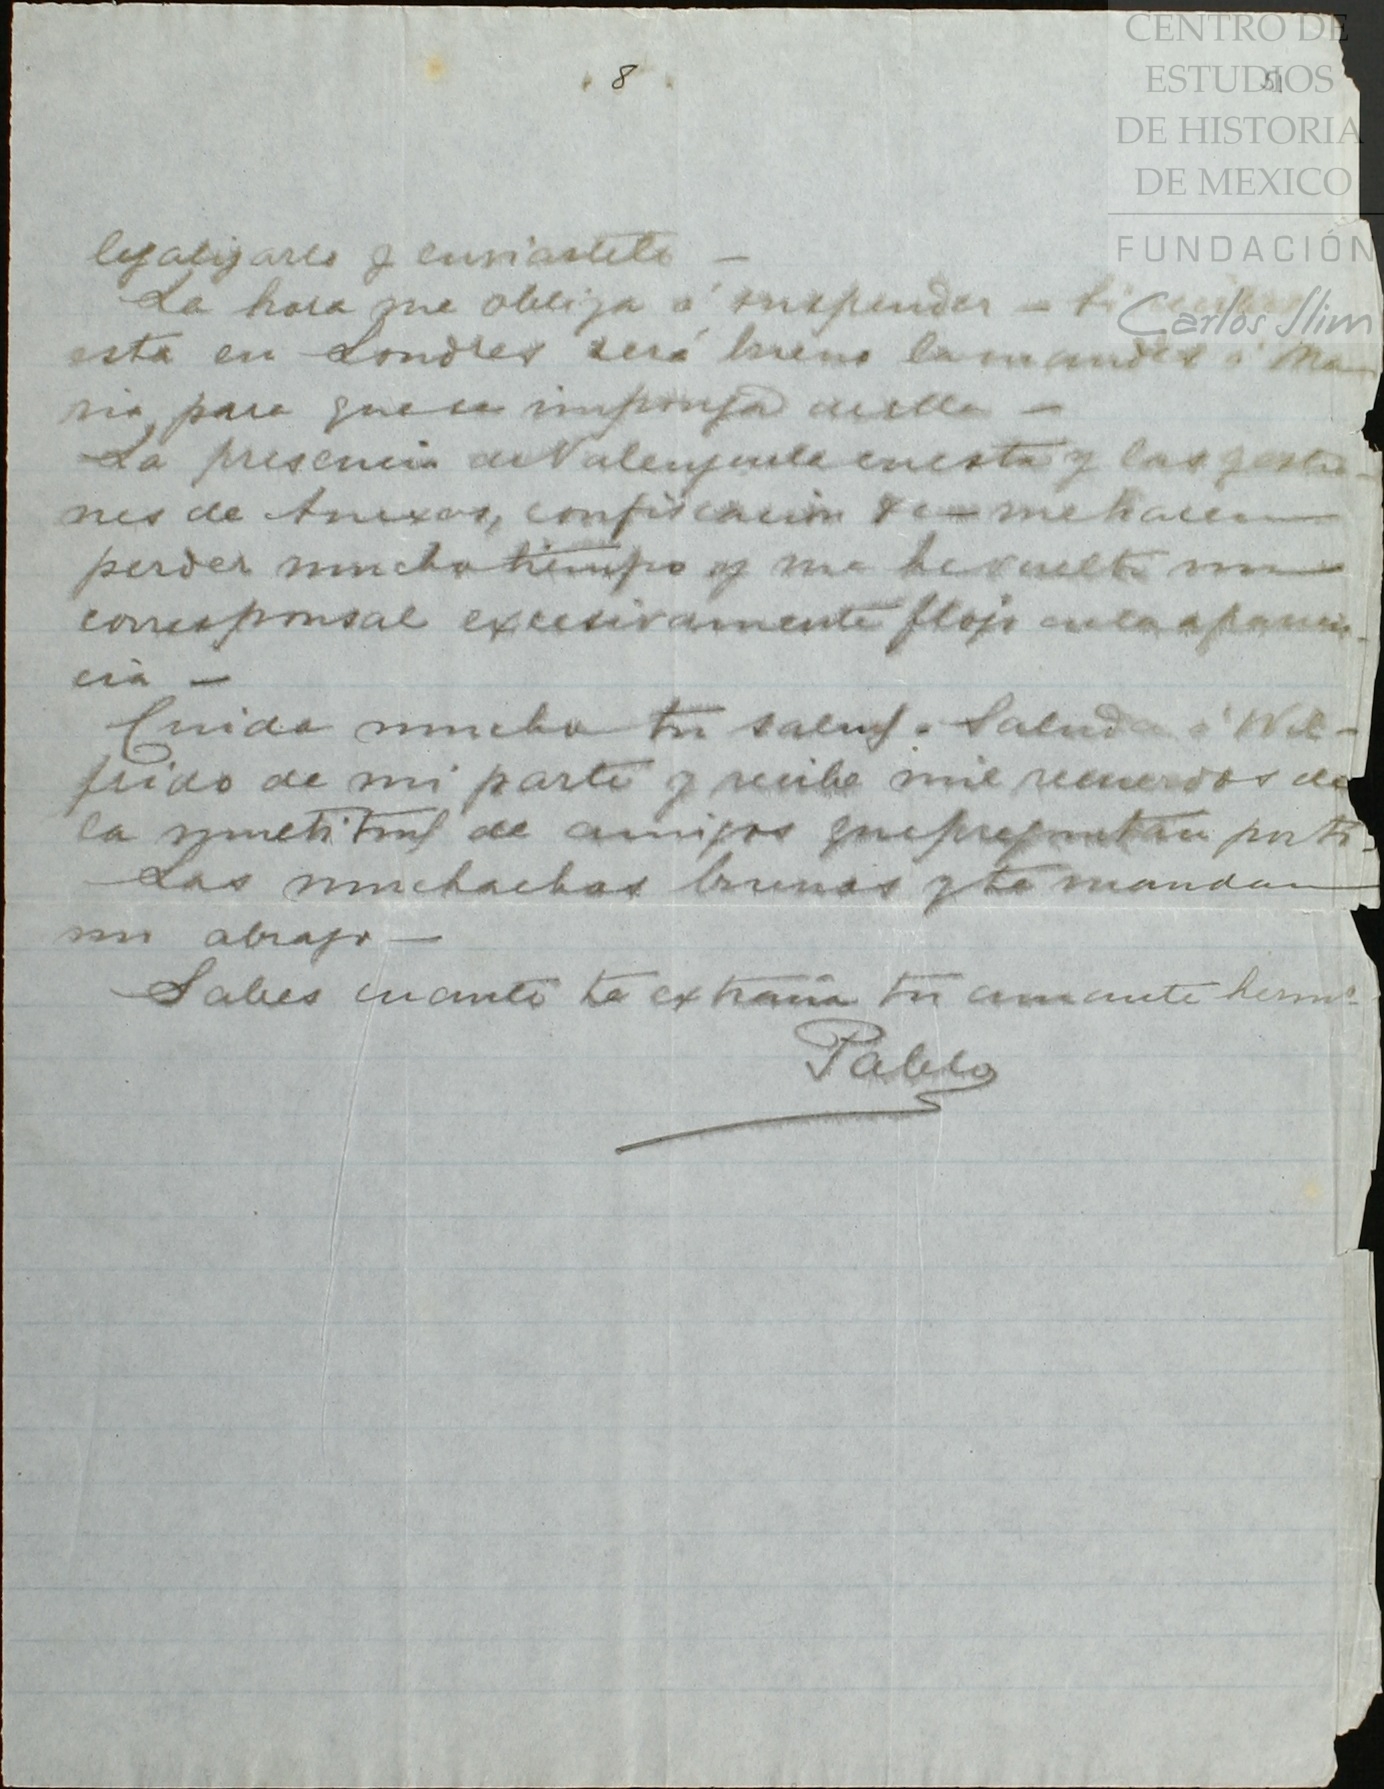 8
51
CENTRO DE
ESTUDIOS
DE HISTORIA
DE MEXICO
FUNDACIÓN
Carlos Slim
legalizarlo y enviartelo —
La hora me obliga á suspender — Si
esta en Londres será bueno la mandes á Ma-
ria, para que se imponga de ella —
La presencia de Valenzuela en esta y las gestio-
nes de Anexas, confiscacion &c — me hacen
perder mucho tiempo y me he vuelto un
corresponsal excesivamente flojo en la aparien-
cia —
Cuida mucho tu salud. Saluda á Wil-
frido de mi parte y recibe mil recuerdos de
la multitud de amigos que preguntan por ti.
Las muchachas buenas y te mandan
un abrazo —
Sabes cuanto te extraña tu amante hermo.
Pablo